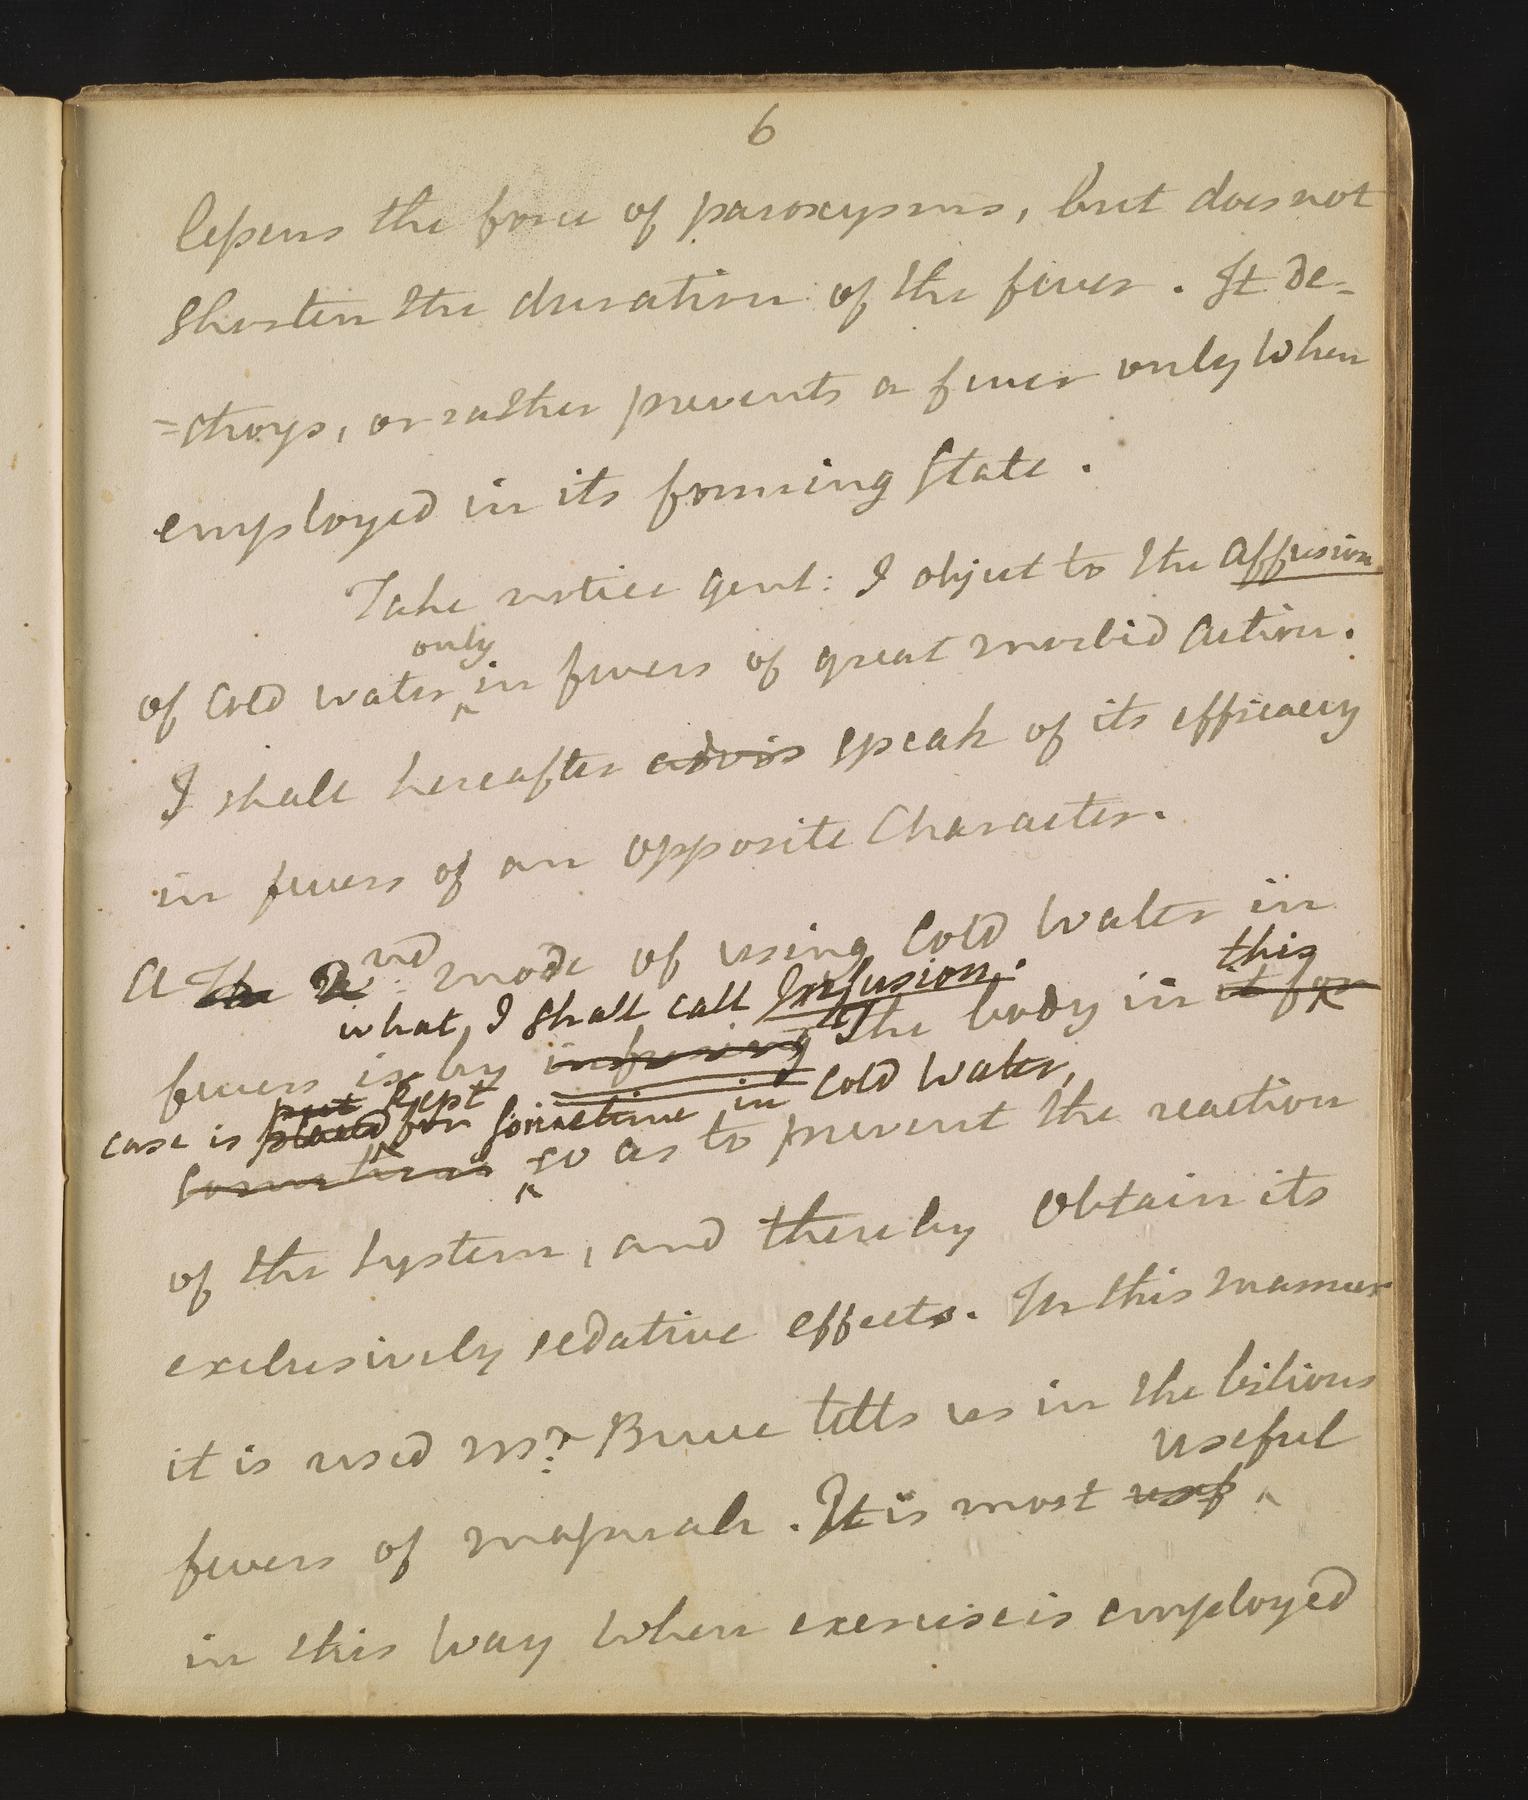 6
lessens the force of paroxysms, but does not
shorten the duration of the fever. It de-
=stroys, or rather prevents a fever only when
employed in its forming State.
Take notice gent: I object to the affusion
only
of cold water ^ in fevers of great morbid action.
I shall hereafter advis speak of its efficacy
in fevers of an opposite Character.
A The 2nd mode of using Cold Water in
what I shall call Infusion. this
fevers is by infusing The body in it for
put kept
case is placed for sometime in Cold Water,
sometime ^ so as to prevent the reaction
of the System, and thereby Obtain its
exclusively sedative effects. In this manner
it is used Mr. Bruce tells us in the bilious
useful
fevers of Massuah. It is most usef ^
in this Way When exercise is employed